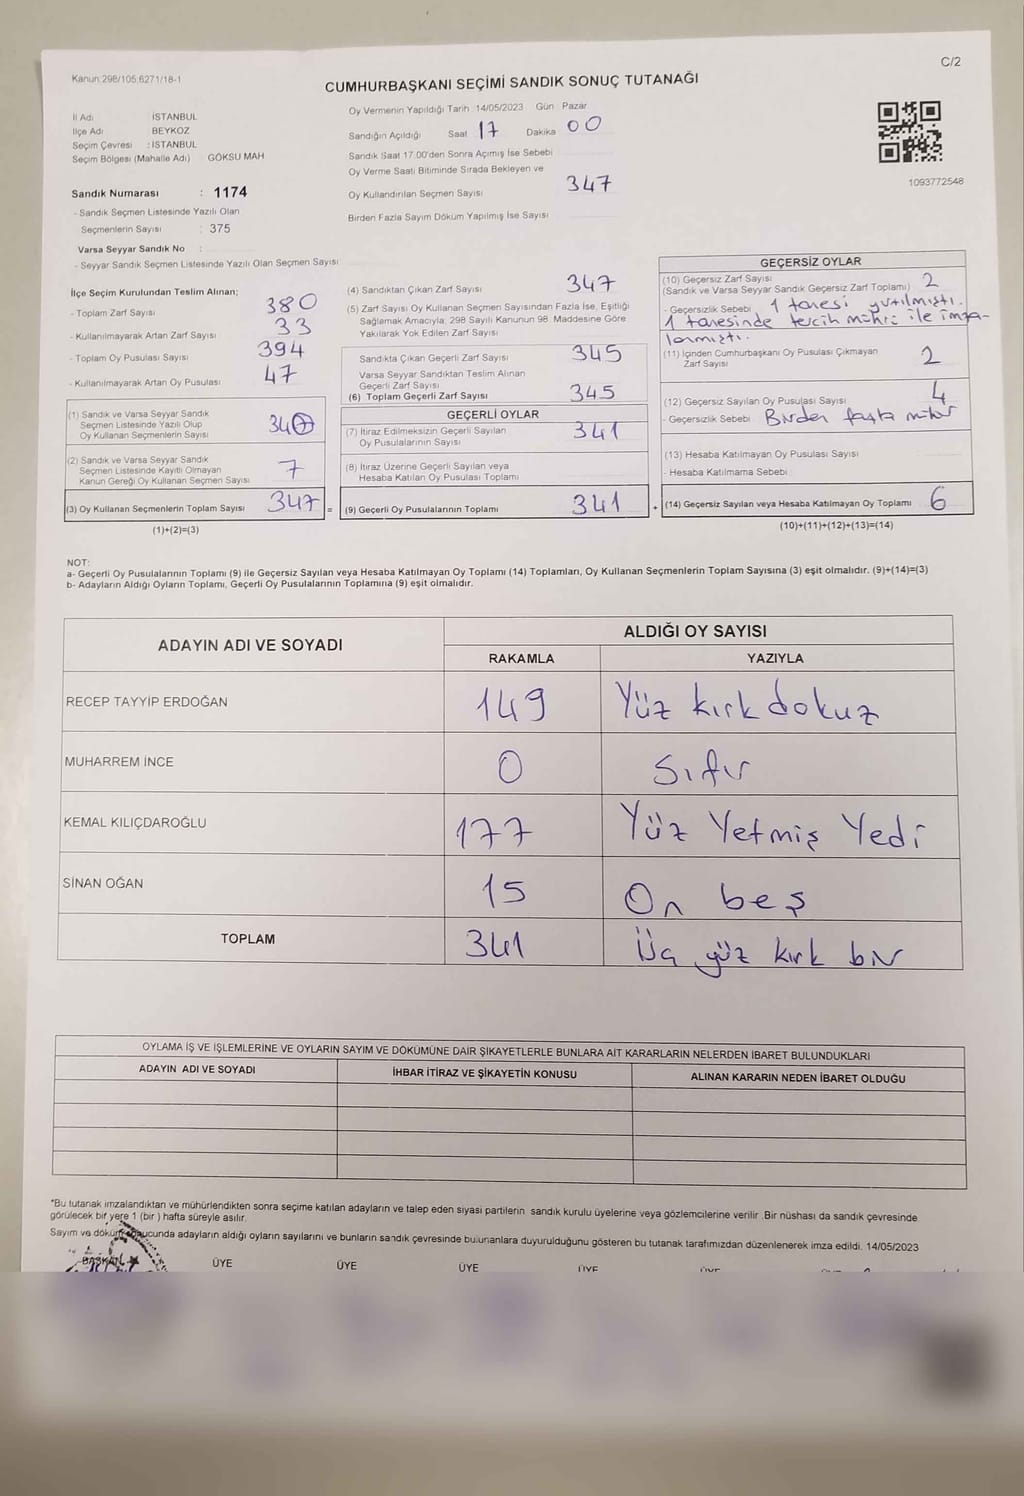 Kanun:298/105.6271/18-1
C/2
CUMHURBAŞKANI SEÇİMİ SANDIK SONUÇ TUTANAĞI
İl Adı İSTANBUL
İlçe Adı BEYKOZ
Seçim Çevresi : İSTANBUL
Seçim Bölgesi (Mahalle Adı) GÖKSU MAH
Sandık Numarası : 1174
- Sandık Seçmen Listesinde Yazılı Olan
Seçmenlerin Sayısı : 375
Varsa Seyyar Sandık No :
- Seyyar Sandık Seçmen Listesinde Yazılı Olan Seçmen Sayısı
Oy Vermenin Yapıldığı Tarih :14/05/2023 Gün Pazar
Sandığın Açıldığı Saat 17 Dakika 00
Sandık Saat 17:00'den Sonra Açımış İse Sebebi
Oy Verme Saati Bitiminde Sırada Bekleyen ve
Oy Kullandırılan Seçmen Sayısı 347
Birden Fazla Sayım Döküm Yapılmış İse Sayısı
1093772548
İlçe Seçim Kurulundan Teslim Alınan;
- Toplam Zarf Sayısı 380
- Kullanılmayarak Artan Zarf Sayısı 33
- Toplam Oy Pusulası Sayısı 394
- Kullanılmayarak Artan Oy Pusulası 47
(1) Sandık ve Varsa Seyyar Sandık
Seçmen Listesinde Yazılı Olup
Oy Kullanan Seçmenlerin Sayısı
(2) Sandık ve Varsa Seyyar Sandık
Seçmen Listesinde Kayıtlı Olmayan
Kanun Gereği Oy Kullanan Seçmen Sayısı 7
(3) Oy Kullanan Seçmenlerin Toplam Sayısı 347 =
(1)+(2)=(3)
(4) Sandıktan Çıkan Zarf Sayısı 347
(5) Zarf Sayısı Oy Kullanan Seçmen Sayısından Fazla İse, Eşitliği
Sağlamak Amacıyla; 298 Sayılı Kanunun 98. Maddesine Göre
Yakılarak Yok Edilen Zarf Sayısı
Sandıkta Çıkan Geçerli Zarf Sayısı 345
Varsa Seyyar Sandıktan Teslim Alınan
Geçerli Zarf Sayısı
(6) Toplam Geçerli Zarf Sayısı 345
GEÇERLİ OYLAR
(7) İtiraz Edilmeksizin Geçerli Sayılan
Oy Pusulalarının Sayısı 341
(8) İtiraz Üzerine Geçerli Sayılan veya
Hesaba Katılan Oy Pusulası Toplamı
(9) Geçerli Oy Pusulalarının Toplamı 341 +
GEÇERSİZ OYLAR
(10) Geçersiz Zarf Sayısı 2
(Sandık ve Varsa Seyyar Sandık Geçersiz Zarf Toplamı)
- Geçersizlik Sebebi 1 tanesi yırtılmıştı.
1 tanesinde tercih mührü ile imza-
lanmıştı.
(11) İçinden Cumhurbaşkanı Oy Pusulası Çıkmayan
Zarf Sayısı 2
(12) Geçersiz Sayılan Oy Pusulası Sayısı 4
- Geçersizlik Sebebi Birden fazla mühür
(13) Hesaba Katılmayan Oy Pusulası Sayısı
- Hesaba Katılmama Sebebi
(14) Geçersiz Sayılan veya Hesaba Katılmayan Oy Toplamı 6
(10)+(11)+(12)+(13)=(14)
NOT:
a- Geçerli Oy Pusulalarının Toplamı (9) ile Geçersiz Sayılan veya Hesaba Katılmayan Oy Toplamı (14) Toplamları, Oy Kullanan Seçmenlerin Toplam Sayısına (3) eşit olmalıdır. (9)+(14)=(3)
b- Adayların Aldığı Oyların Toplamı, Geçerli Oy Pusulalarının Toplamına (9) eşit olmalıdır.
ADAYIN ADI VE SOYADI
ALDIĞI OY SAYISI
RAKAMLA YAZIYLA
RECEP TAYYİP ERDOĞAN 149 Yüz kırk dokuz
MUHARREM İNCE 0 Sıfır
KEMAL KILIÇDAROĞLU 177 Yüz Yetmiş Yedi
SİNAN OĞAN 15 On beş
TOPLAM 341 Üç yüz kırk bir
OYLAMA İŞ VE İŞLEMLERİNE VE OYLARIN SAYIM VE DÖKÜMÜNE DAİR ŞİKAYETLERLE BUNLARA AİT KARARLARIN NELERDEN İBARET BULUNDUKLARI
ADAYIN ADI VE SOYADI İHBAR İTİRAZ VE ŞİKAYETİN KONUSU ALINAN KARARIN NEDEN İBARET OLDUĞU
*Bu tutanak imzalandıktan ve mühürlendikten sonra seçime katılan adayların ve talep eden siyasi partilerin sandık kurulu üyelerine veya gözlemcilerine verilir .Bir nüshası da sandık çevresinde
görülecek bir yere 1 (bir ) hafta süreyle asılır.
Sayım ve döküm sonucunda adayların aldığı oyların sayılarını ve bunların sandık çevresinde bulunanlara duyurulduğunu gösteren bu tutanak tarafımızdan düzenlenerek imza edildi. 14/05/2023
BAŞKAN ÜYE ÜYE ÜYE ÜYE ÜYE